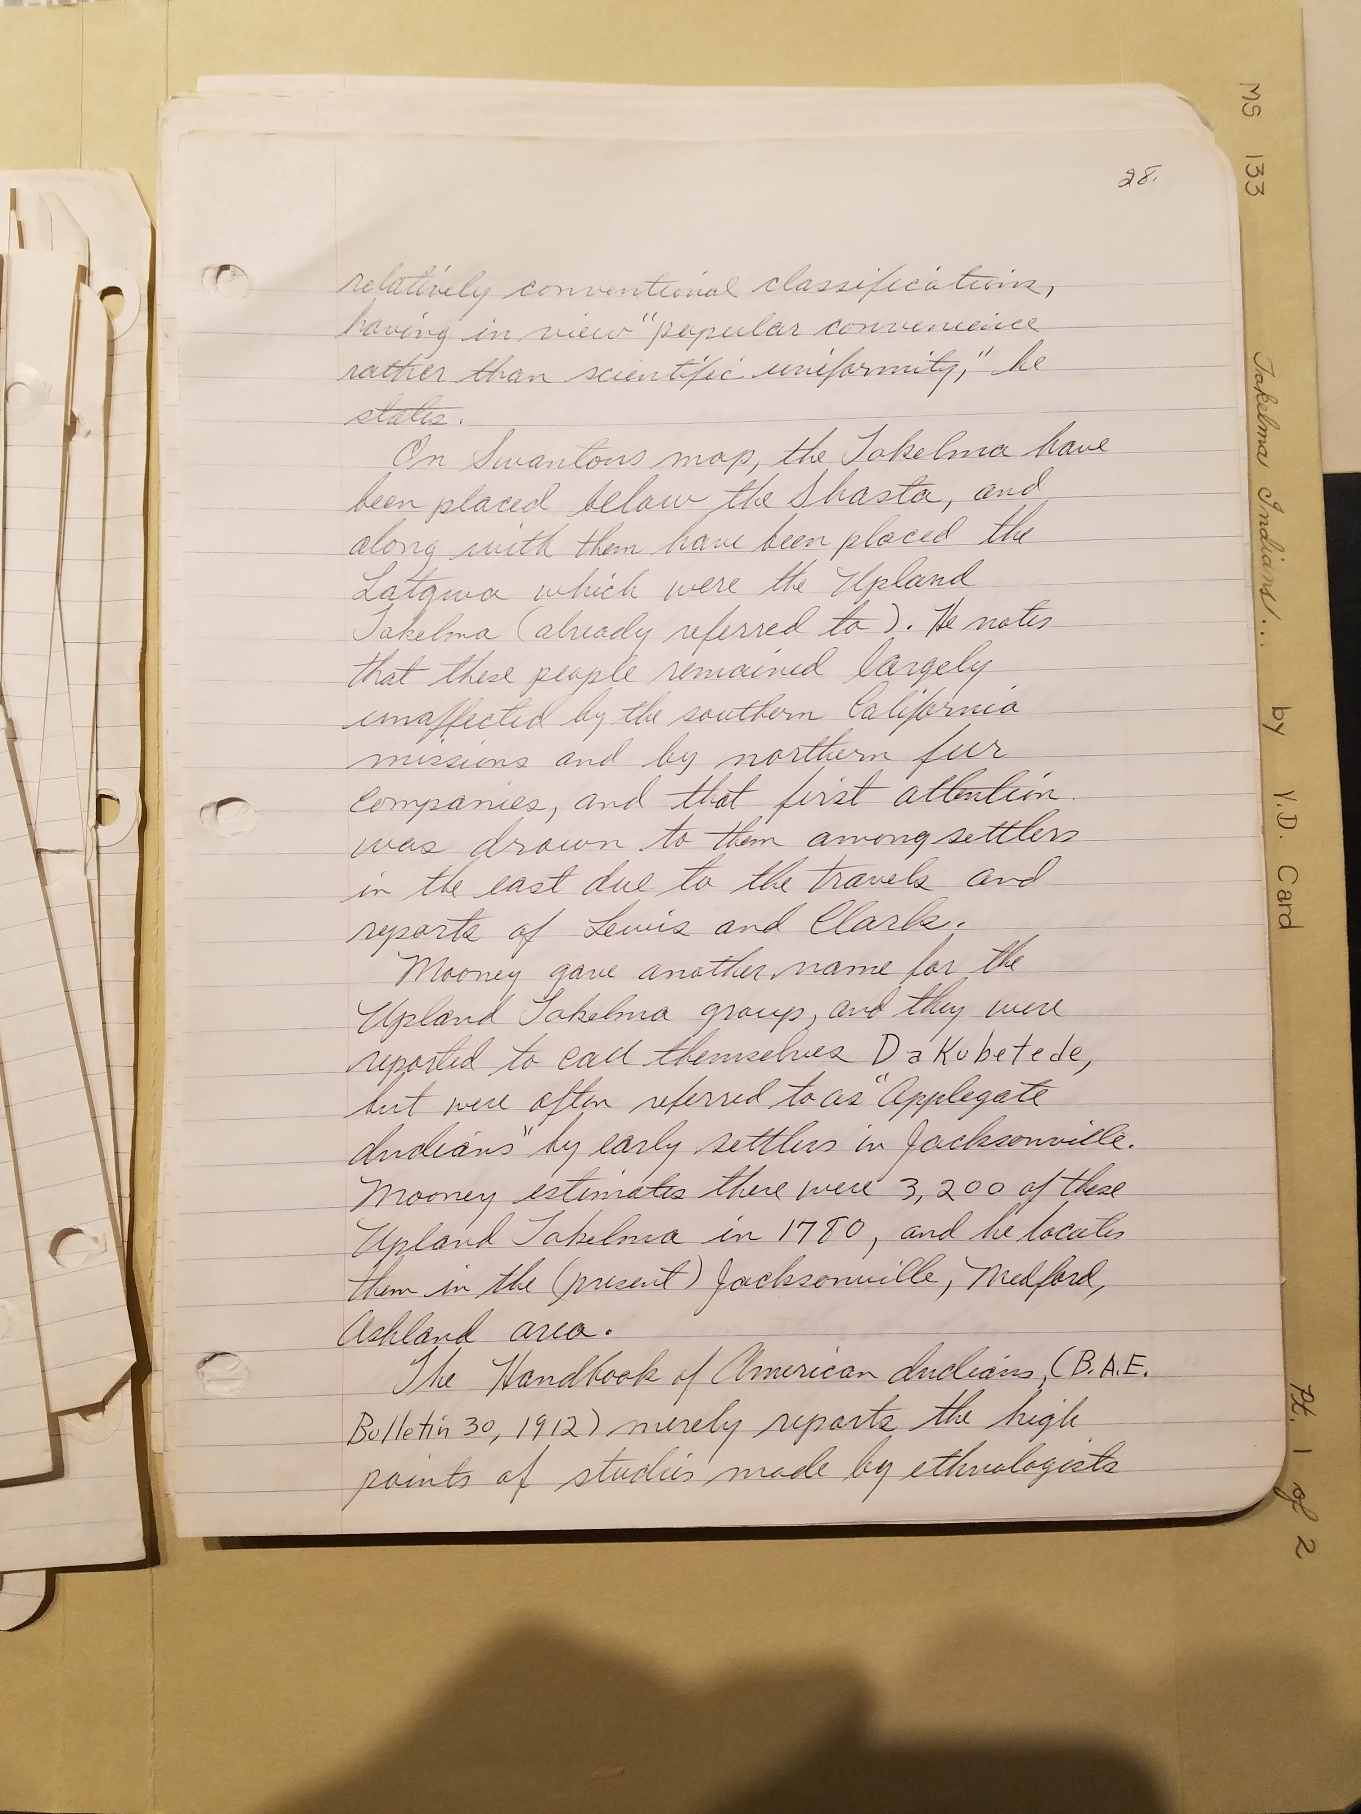 28.
relatively conventional classifications,
having in view "popular convenience
rather than scientific uniformity," he
states.
On Swantons map, the Takelma have
been placed below the Shasta, and
along with them have been placed the
Latgwa which were the Upland
Takelma (already referred to). He notes
that these people remained largely
unaffected by the southern California
missions and by northern fur
companies, and that first attention
was drawn to them among settlers
in the east due to the travels and
reports of Lewis and Clark.
Mooney gave another name for the
Upland Takelma group, and they were
reported to call themselves DaKubetede,
but were often referred to as "Applegate
Indians" by early settlers in Jacksonville.
Mooney estimates there were 3,200 of these
Upland Takelma in 1780, and he locates
them in the (present) Jacksonville, Medford,
Ashland area.
The Handbook of American Indians, (B.A.E.
Bulletin 30, 1912) merely reports the high
points of studies made by ethnologists
MS 133 Takelma Indians... by V.D. Card Pt. 1 of 2